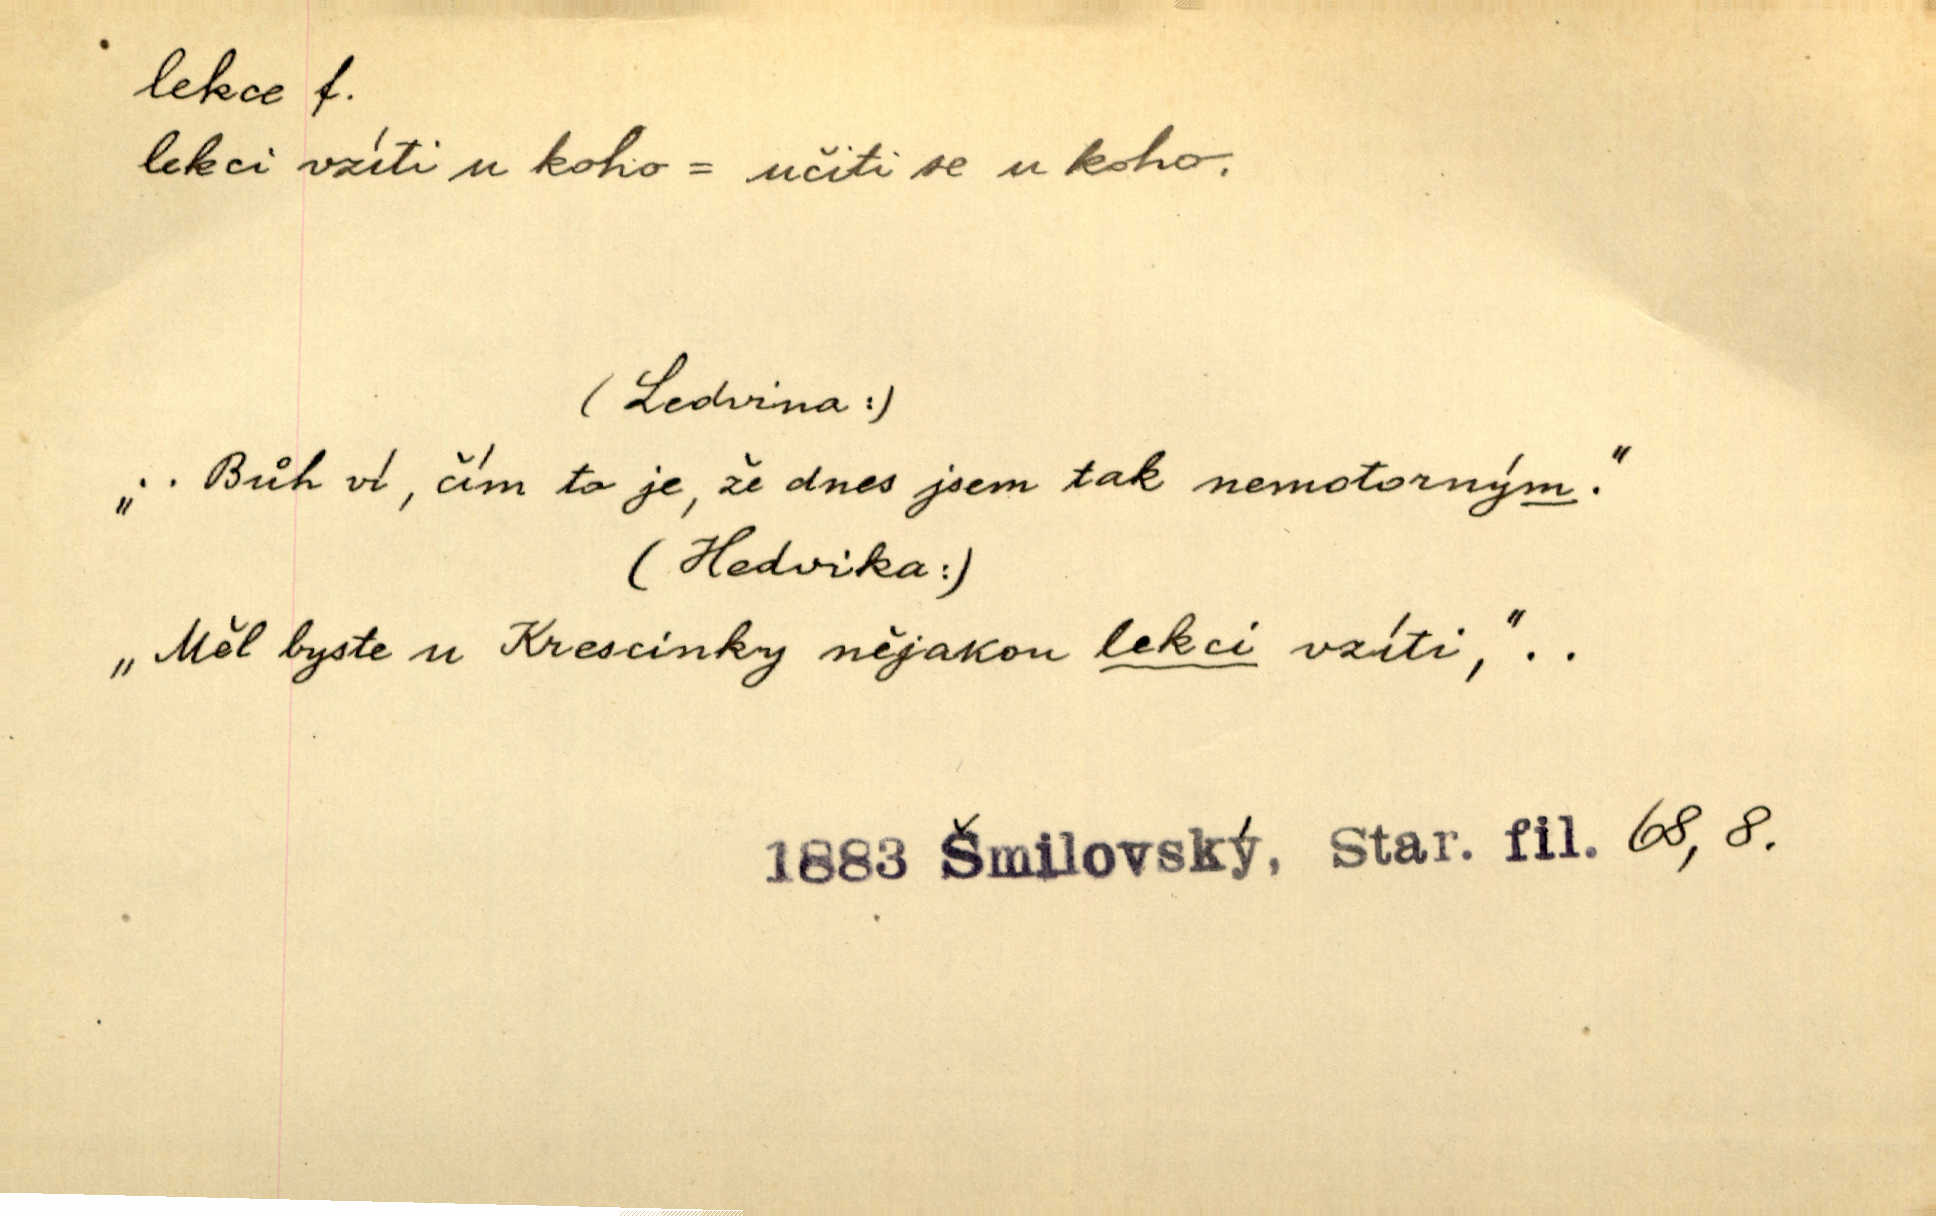 lekce f.
lekci vzíti u koho = učiti se u koho.
(Ledvina:)
„.. Bůh ví, čím to je, že dnes jsem tak nemotorným."
(Hedvika:)
„Měl byste u Krescinky nějakou lekci vzíti,"..
1883 Šmilovský, Star. fil. 68, 8.